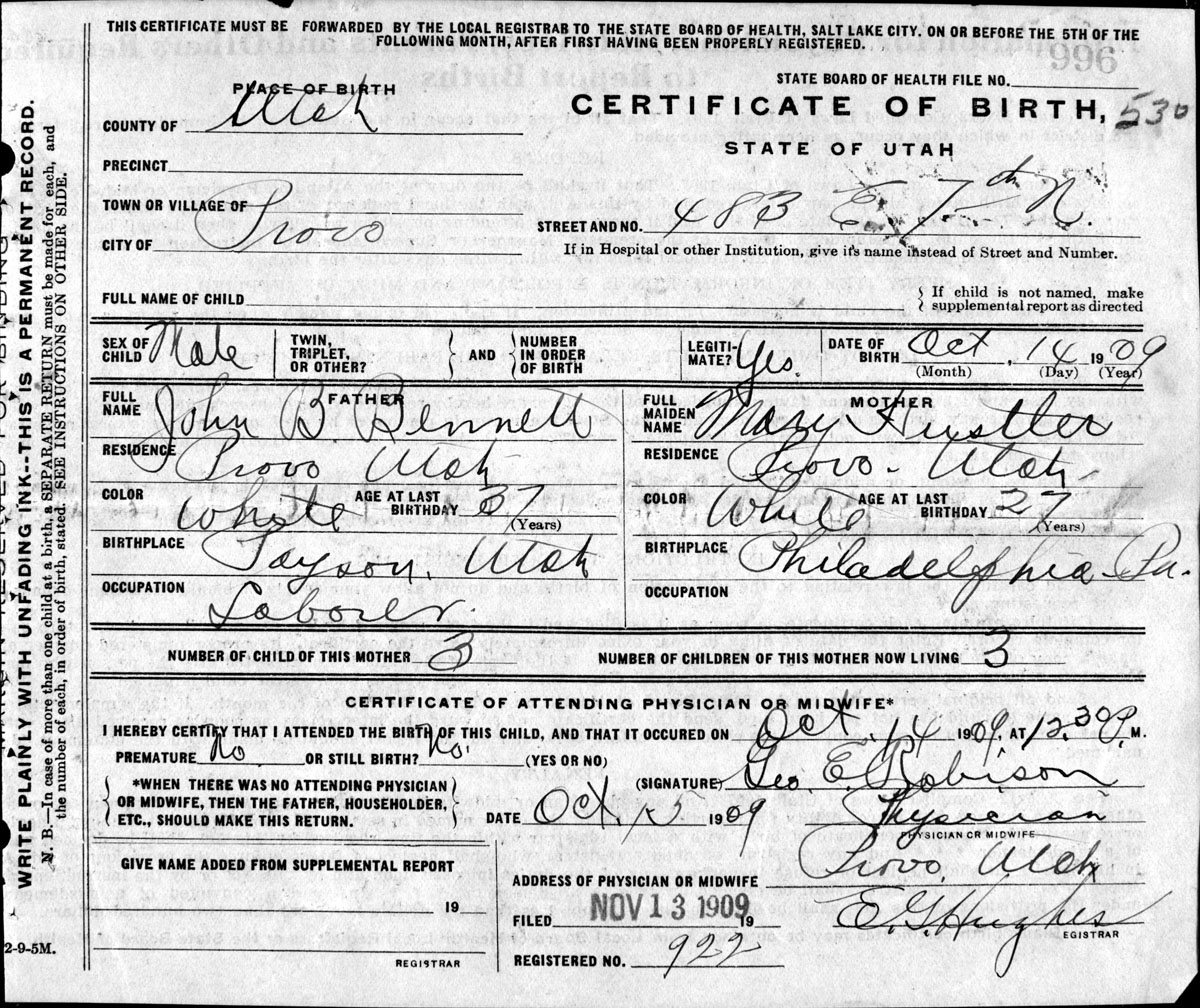 THIS CERTIFICATE MUST BE FORWARDED BY THE LOCAL REGISTRAR TO THE STATE BOARD OF HEALTH, SALT LAKE CITY. ON OR BEFORE THE 5TH OF THE
FOLLOWING MONTH, AFTER FIRST HAVING BEEN PROPERLY REGISTERED.
STATE BOARD OF HEALTH FILE NO.
PLACE OF BIRTH
CERTIFICATE OF BIRTH, 530
COUNTY OF Utah
STATE OF UTAH
PRECINCT
TOWN OR VILLAGE OF
STREET AND NO. 483 E. 7th N.
CITY OF Provo
If in Hospital or other Institution, give it's name instead of Street and Number.
FULL NAME OF CHILD
{ If child is not named, make
supplemental report as directed
SEX OF CHILD Male
TWIN, TRIPLET, OR OTHER? } AND { NUMBER IN ORDER OF BIRTH
LEGITI-MATE? Yes.
DATE OF BIRTH Oct. 14 1909
(Month) (Day) (Year)
FATHER
FULL NAME John B. Bennett
RESIDENCE Provo Utah
COLOR White AGE AT LAST BIRTHDAY 37
(Years)
BIRTHPLACE Payson, Utah
OCCUPATION Laborer.
MOTHER
FULL MAIDEN NAME Mary Hustler
RESIDENCE Provo - Utah
COLOR White AGE AT LAST BIRTHDAY 27
(Years)
BIRTHPLACE Philadelphia Pa.
OCCUPATION
NUMBER OF CHILD OF THIS MOTHER 3 NUMBER OF CHILDREN OF THIS MOTHER NOW LIVING 3
CERTIFICATE OF ATTENDING PHYSICIAN OR MIDWIFE*
I HEREBY CERTIFY THAT I ATTENDED THE BIRTH OF THIS CHILD, AND THAT IT OCCURED ON Oct. 14 1909, AT 12.30 P. M.
PREMATURE No OR STILL BIRTH? No. (YES OR NO)
(SIGNATURE) Geo. E. Robison
*WHEN THERE WAS NO ATTENDING PHYSICIAN
OR MIDWIFE, THEN THE FATHER, HOUSEHOLDER,
ETC., SHOULD MAKE THIS RETURN.
DATE Oct 15 1909
Physician
PHYSICIAN OR MIDWIFE
GIVE NAME ADDED FROM SUPPLEMENTAL REPORT
19
REGISTRAR
ADDRESS OF PHYSICIAN OR MIDWIFE Provo, Utah
FILED NOV 13 1909 19 E. G. Hughes
EGISTRAR
REGISTERED NO. 922
2-9-5M.
WRITE PLAINLY WITH UNFADING INK--THIS IS A PERMANENT RECORD.
N. B.—In case of more than one child at a birth, a SEPARATE RETURN must be made for each, and
the number of each, in order of birth, stated. (SEE INSTRUCTIONS ON OTHER SIDE.